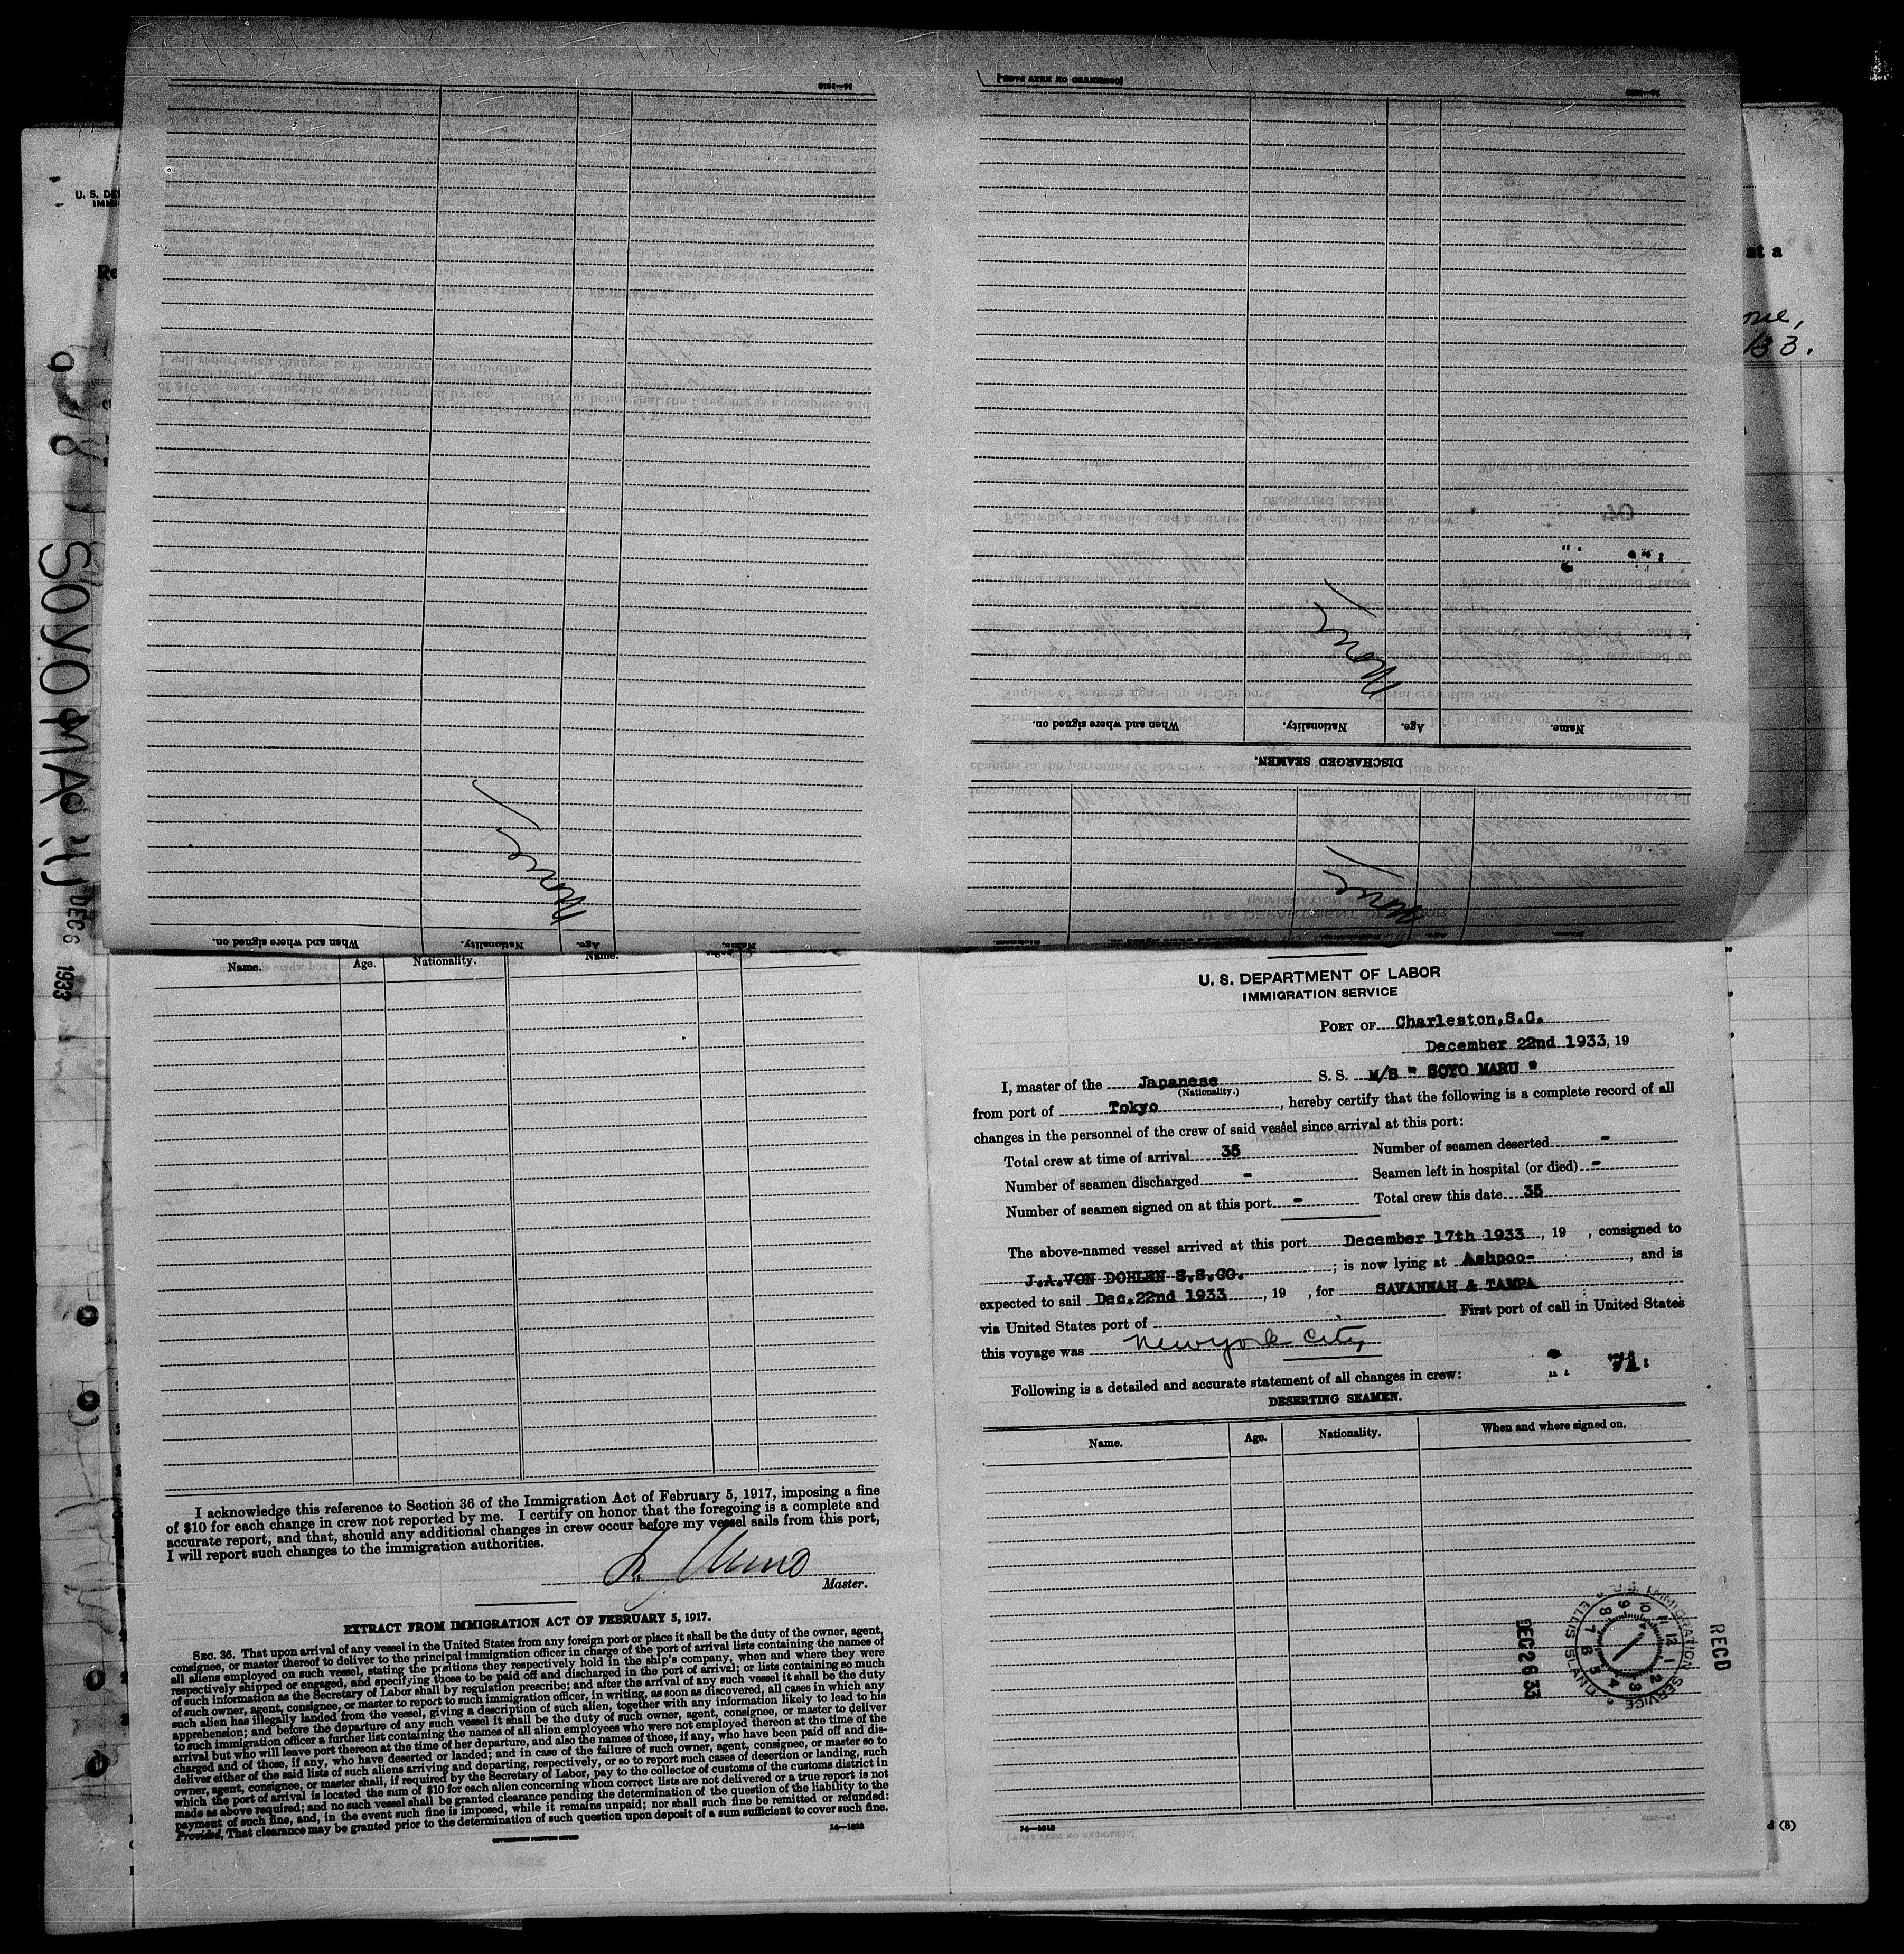 [CONTINUED ON NEXT PAGE.]
14—1613
U. S. DE
IMMI
Re
at a
ne,
133.
None
None
Name.
Age.
Nationality.
When and where signed on.
DISCHARGED SEAMEN.
None
Name.
Age.
Nationality.
When and where signed on.
SOYO MARU
DEC 6 1933
Name.
Age.
Nationality.
Name.
I acknowledge this reference to Section 36 of the Immigration Act of February 5, 1917, imposing a fine
of $10 for each change in crew not reported by me. I certify on honor that the foregoing is a complete and
accurate report, and that, should any additional changes in crew occur before my vessel sails from this port,
I will report such changes to the immigration authorities.
Master.
EXTRACT FROM IMMIGRATION ACT OF FEBRUARY 5, 1917.
SEC. 36. That upon arrival of any vessel in the United States from any foreign port or place it shall be the duty of the owner, agent,
consignee, or master thereof to deliver to the principal immigration officer in charge of the port of arrival lists containing the names of
all aliens employed on such vessel, stating the positions they respectively hold in the ship's company, when and where they were
respectively shipped or engaged, and specifying those to be paid off and discharged in the port of arrival; or lists containing so much
of such information as the Secretary of Labor shall by regulation prescribe; and after the arrival of any such vessel it shall be the duty
of such owner, agent, consignee, or master to report to such immigration officer, in writing, as soon as discovered, all cases in which any
such alien has illegally landed from the vessel, giving a description of such alien, together with any information likely to lead to his
apprehension; and before the departure of any such vessel it shall be the duty of such owner, agent, consignee, or master to deliver
to such immigration officer a further list containing the names of all alien employees who were not employed thereon at the time of the
arrival but who will leave port thereon at the time of her departure, and also the names of those, if any, who have been paid off and dis-
charged and of those, if any, who have deserted or landed; and in case of the failure of such owner, agent, consignee, or master so to
deliver either of the said lists of such aliens arriving and departing, respectively, or so to report such cases of desertion or landing, such
owner, agent, consignee, or master shall, if required by the Secretary of Labor, pay to the collector of customs of the customs district in
which the port of arrival is located the sum of $10 for each alien concerning whom correct lists are not delivered or a true report is not
made as above required; and no such vessel shall be granted clearance pending the determination of the question of the liability to the
payment of such fine, and, in the event such fine is imposed, while it remains unpaid; nor shall such fine be remitted or refunded:
Provided, That clearance may be granted prior to the determination of such question upon deposit of a sum sufficient to cover such fine.
GOVERNMENT PRINTING OFFICE
14—1613
U. S. DEPARTMENT OF LABOR
IMMIGRATION SERVICE
PORT OF Charleston,S.C.
December 22nd 1933, 19
I, master of the Japanese S. S. M/S " SOYO MARU "
(Nationality.)
from port of Tokyo, hereby certify that the following is a complete record of all
changes in the personnel of the crew of said vessel since arrival at this port:
Total crew at time of arrival 35 Number of seamen deserted -
Number of seamen discharged - Seamen left in hospital (or died) -
Number of seamen signed on at this port - Total crew this date 35
The above-named vessel arrived at this port December 17th 1933, 19 , consigned to
J.A.VON DOHLEN S.S.CO. ; is now lying at Ashpoo- , and is
expected to sail Dec.22nd 1933 , 19 , for SAVANNAH & TAMPA
via United States port of First port of call in United States
this voyage was New york City
71
Following is a detailed and accurate statement of all changes in crew:
DESERTING SEAMEN.
Name.
Age.
Nationality.
When and where signed on.
RECD
U.S. IMMIGRATION SERVICE
ELLIS ISLAND
DEC 26 33
14—1613
d (8)